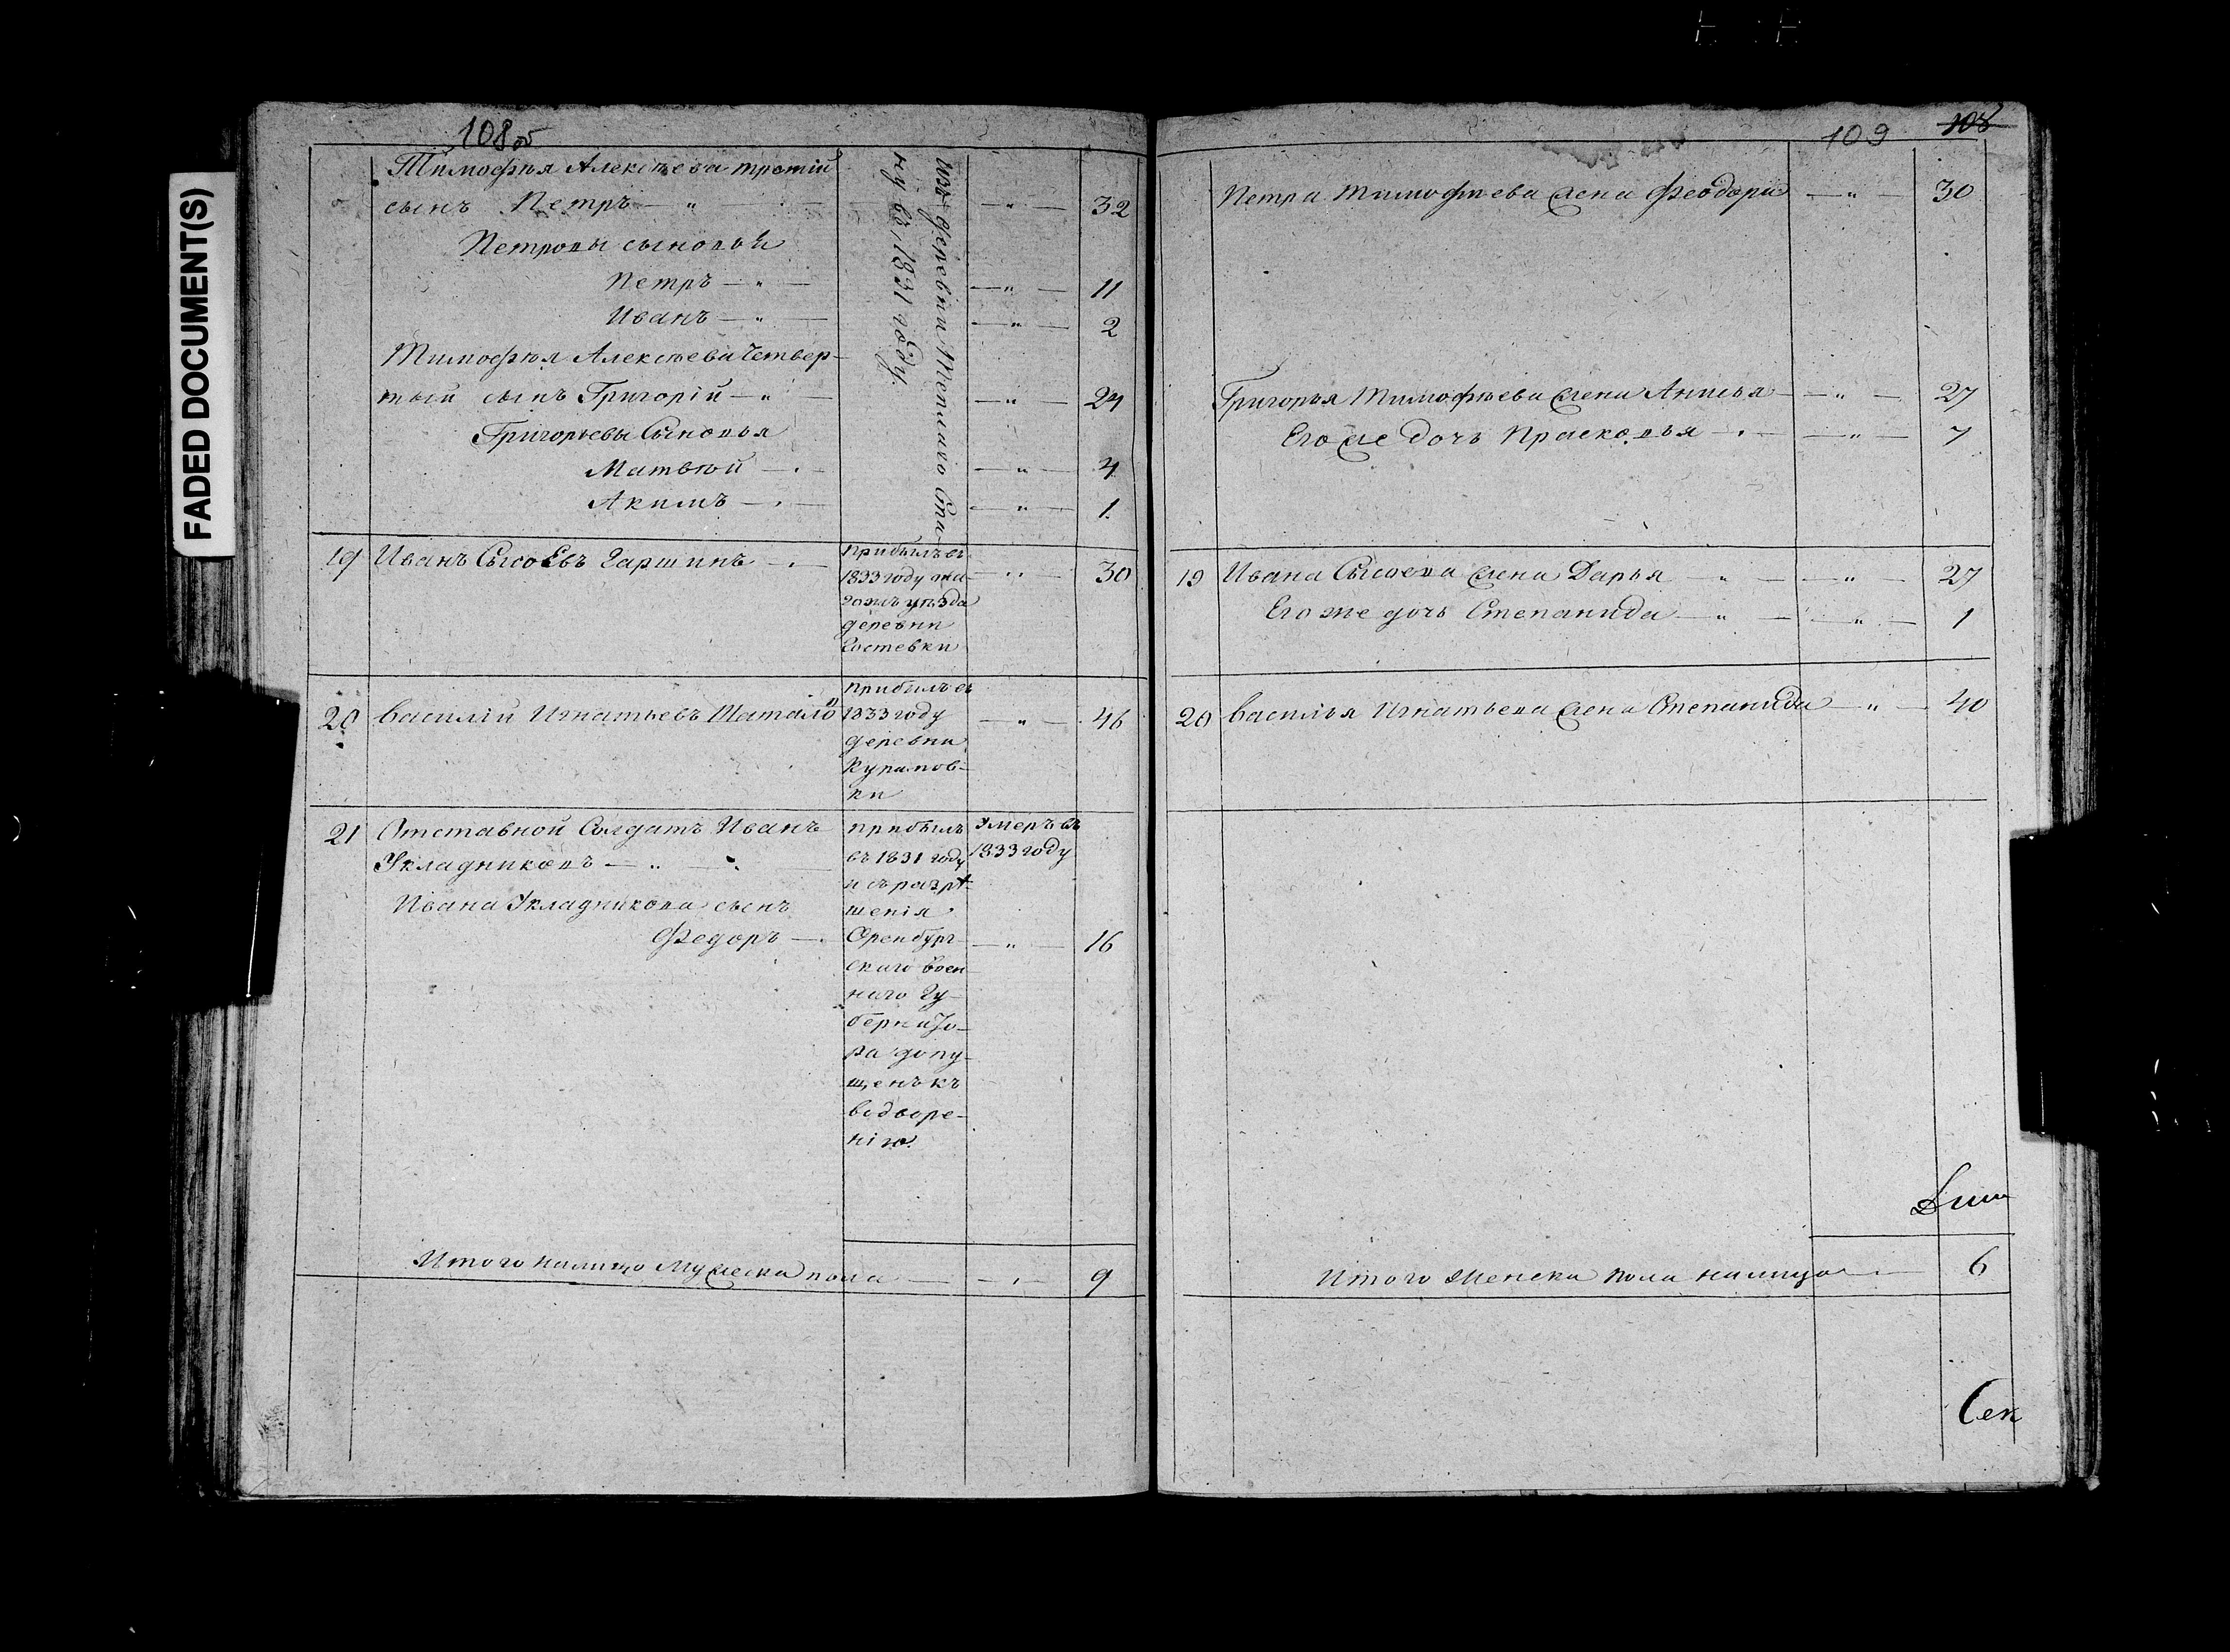 FADED DOCUMENT(S)
108об
Тимофѣя Алексѣева третій
сынъ Петръ — " — — " — 32
Петровы сыновья
Петръ — " — — " — 11
Иванъ — " — — " — 2
Тимофѣя Алексѣева четвер-
тый сынъ Григорій — " — — " — 24
Григорьевы Сыновья
Матвѣй — " — — " — 4
Акимъ — " — — " — 1
Изъ деревни
ну въ 1831 году.
19 Иванъ Сысоевъ Гаршинъ — " — 30
прибылъ въ
1833 году та-
гожъ уѣзда
деревни
Костевки
20 Василій Игнатьевъ Шатало — " — 46
прибылъ въ
1833 году
деревни
ки
21 Отставной Солдатъ Иванъ
Укладниковъ — " —
Ивана Укладникова сынъ
Федоръ — " — 16
прибылъ
въ 1831 году
и съ разрѣ-
шенія
Оренбург-
скаго воен-
наго Гу-
бернато-
ра допу-
щенъ къ
водворе-
нію.
Умеръ въ
1833 году
Итого налицо Мужеска пола — " — 9
109 108
Петра Тимофѣева жена Феодора — " — 30
Григорья Тимофѣева жена Анисья — " — 27
Его же дочь Прасковья — " — 7
19 Ивана Сысоева жена Дарья — " — 27
Его же дочь Степанида — " — 1
20 Василья Игнатьева жена Степанида — " — 40
Итого Женска пола налицо — 6
Сек